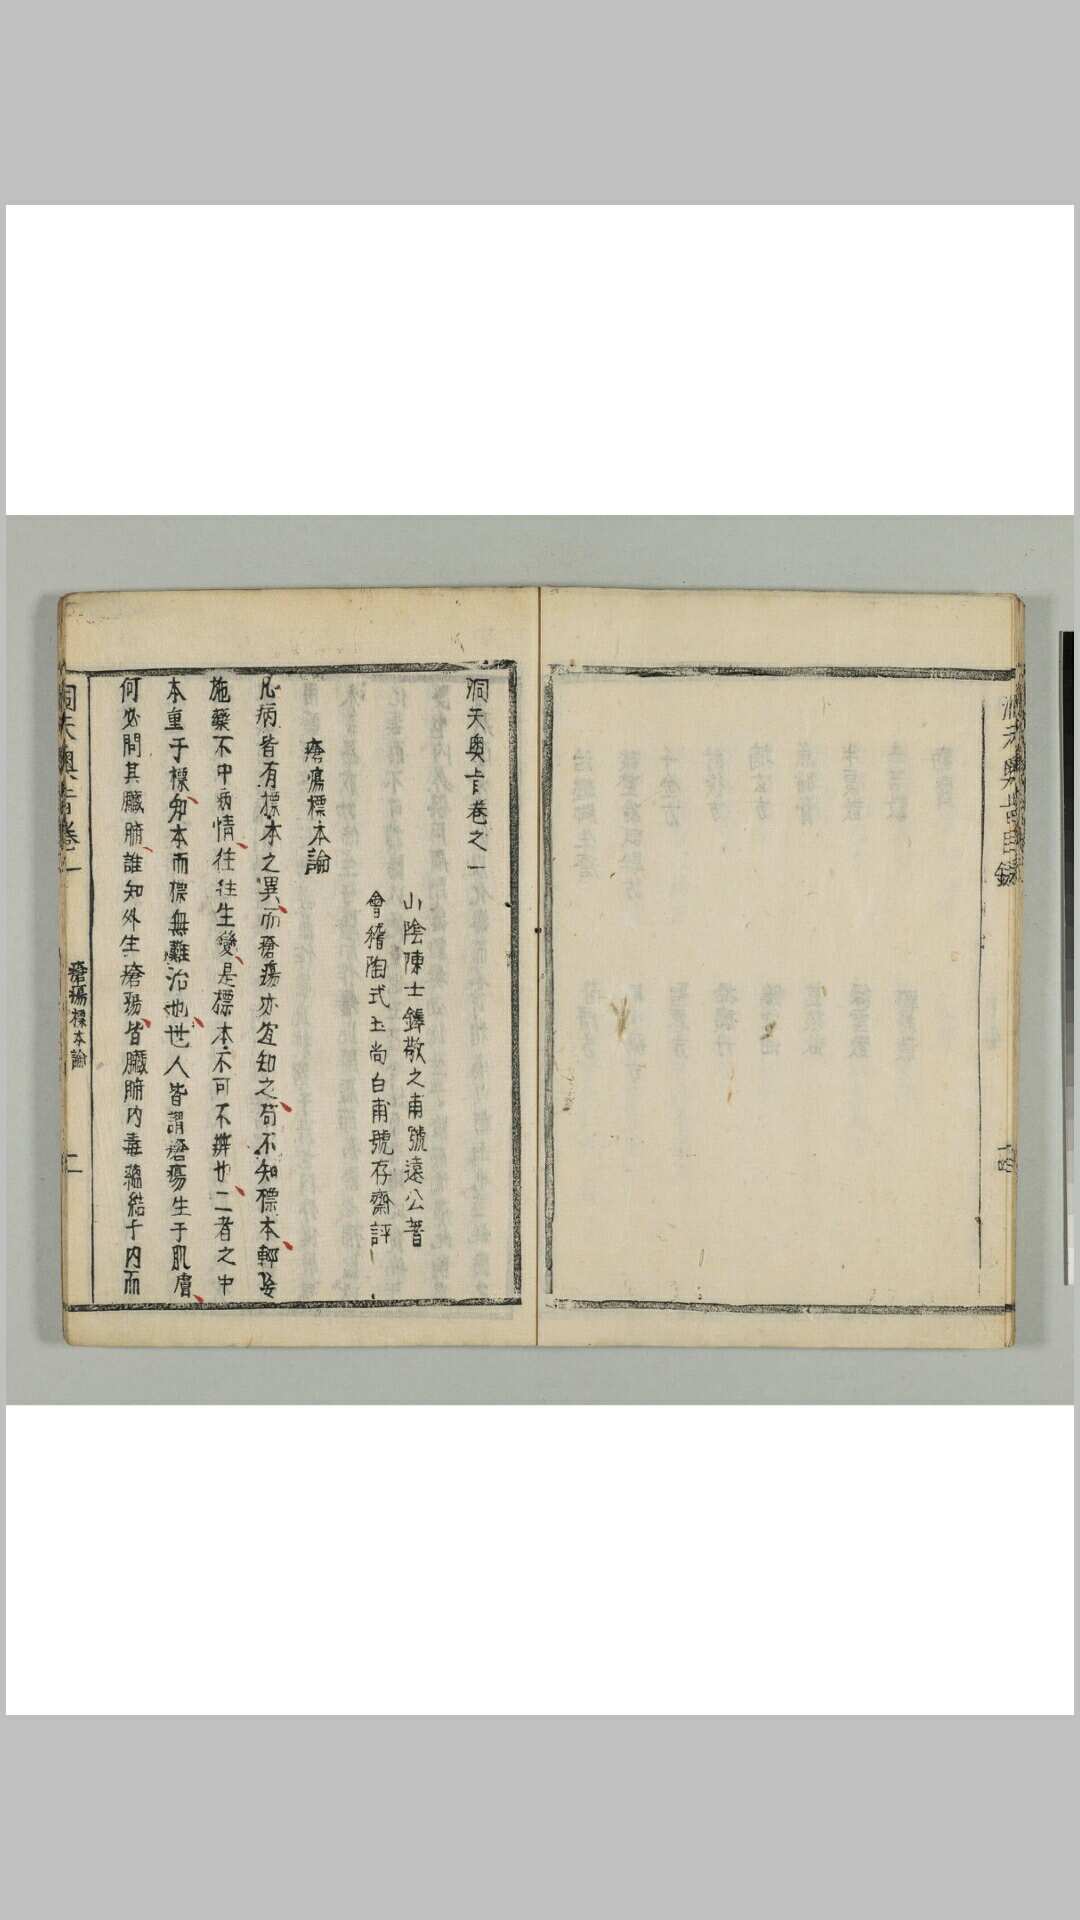 洞天奧旨目錄
洞天奧旨卷之一
山陰陳士鐸敬之甫號遠公著
會稽陶式玉尚白甫號存齋評
瘡瘍標本論
凡病皆有標本之異而瘡瘍亦宜知之苟不知標本輕妄
施藥不中病情往往生變是標本不可不辨也二者之中
本重于標知本而標無難治也世人皆謂瘡瘍生于肌膚
何必問其臟腑誰知外生瘡瘍皆臟腑內毒蘊結于內而
洞天奧旨卷一
瘡瘍標本論